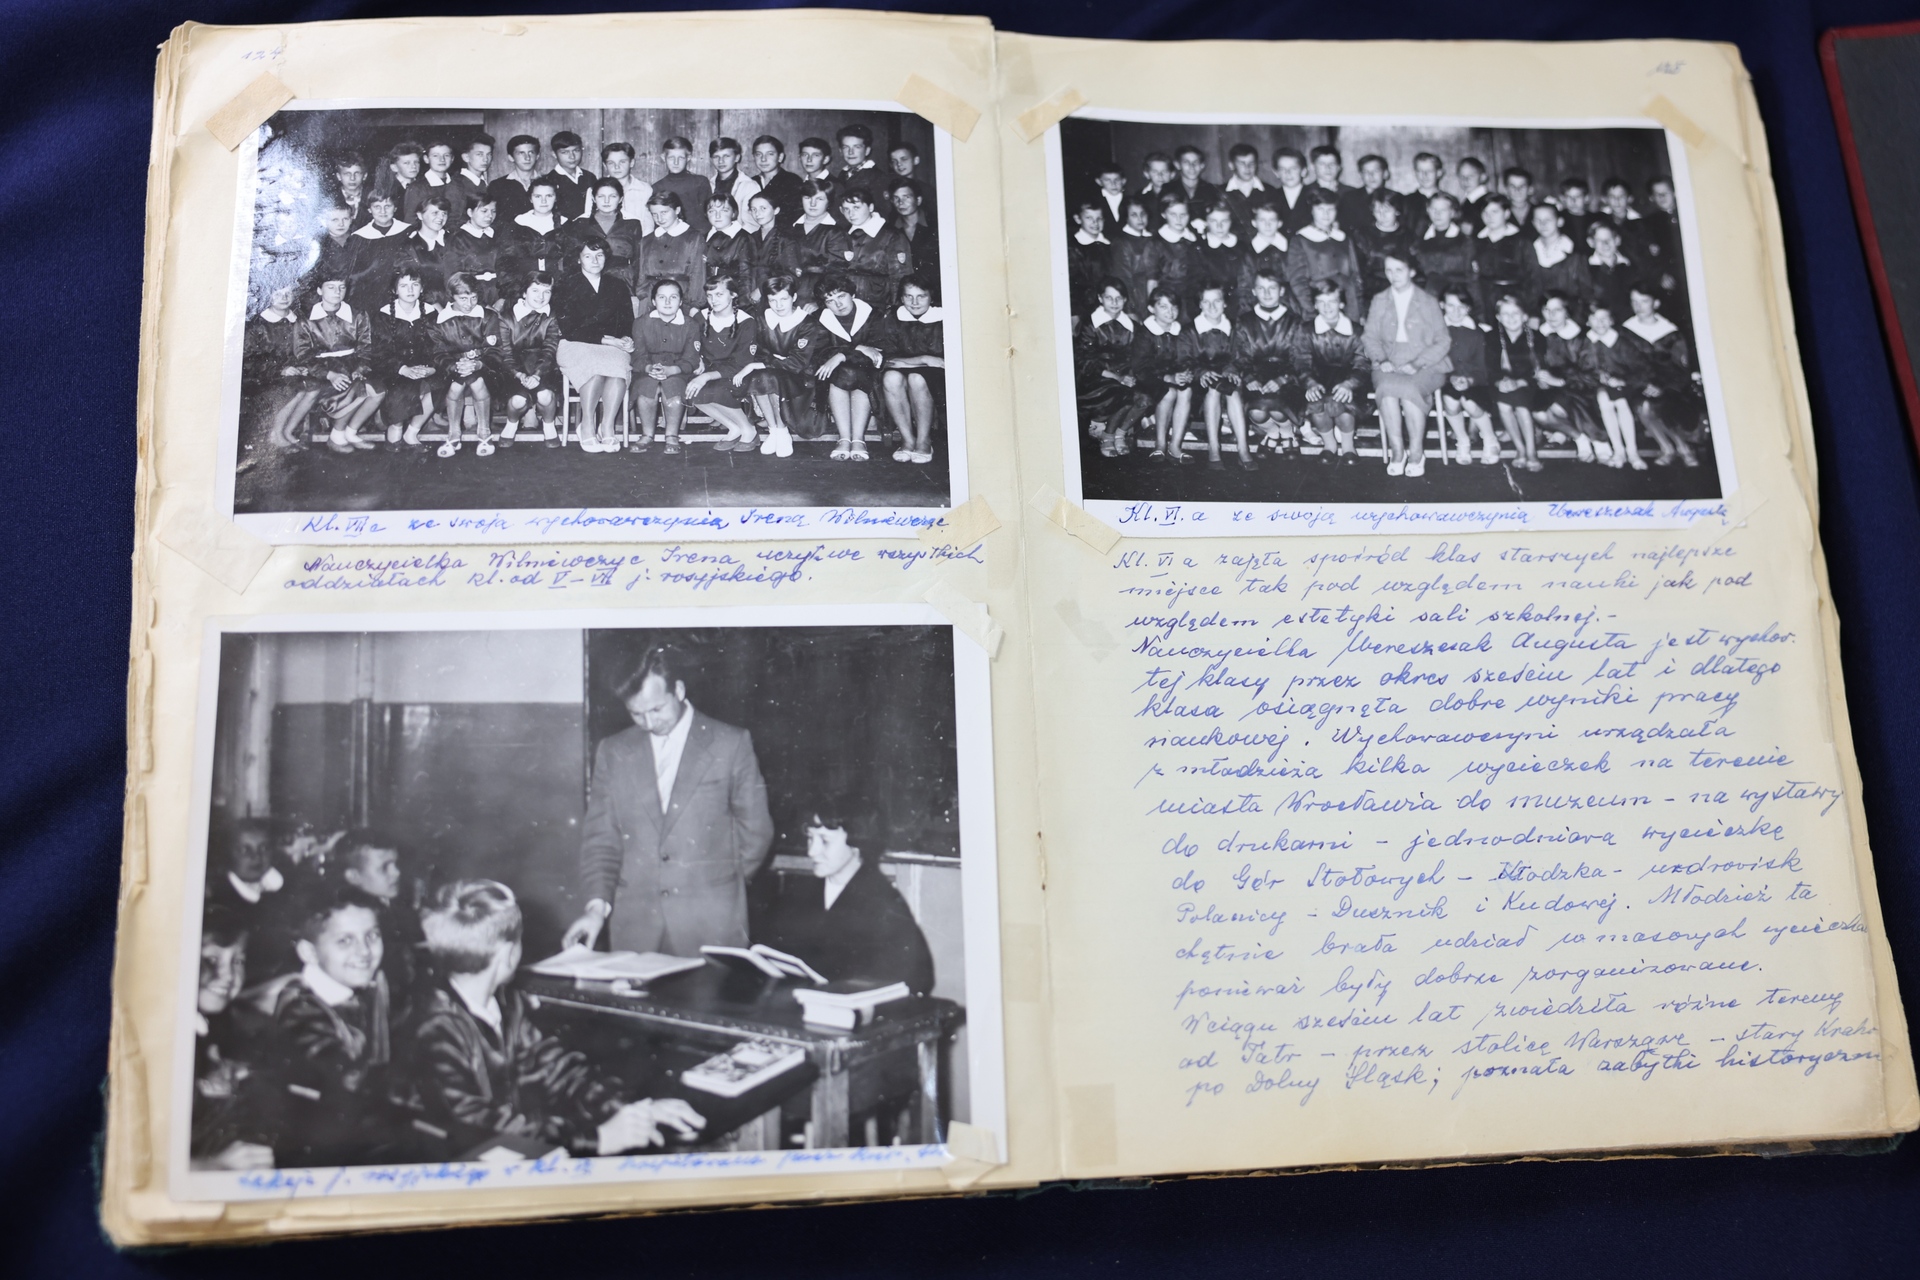 124
Kl. VII c ze swoja wychowawczynią Ireną Wilniewczyc
Nauczycielka Wilniewczyc Irena uczył we wszystkich
oddziałach kl. od V – VII j. rosyjskiego.
Lekcja j. rosyjskiego w kl.
125
Kl. VI. a ze swoją wychowawczynią Wereszczak Augustą
Kl. VI a zajęta spośród klas starszych najlepsze
miejsce tak pod względem nauki jak pod
względem estetyki sali szkolnej.-
Nauczycielka Wereszczak Augusta jest wychow.
tej klasy przez okres sześciu lat i dlatego
klasa osiągnęta dobre wyniki pracy
naukowej. Wychowawczyni urządzała
z młodzieżą kilka wycieczek na terenie
miasta Wrocławia do muzeum – na wystawy
do drukarni – jednodniową wycieczkę
do Gór Stołowych – Kłodzka – uzdrowisk
Polanicy – Dusznik i Kudowej. Młodzież ta
chętnie brała udział w masowych wycieczka
ponieważ były dobrze zorganizowane.
W ciągu sześciu lat zwiedziła różne tereny
od Tatr – przez stolicę Warszawę – stary Krak
po Dolny Śląsk; poznała zabytki historyczn